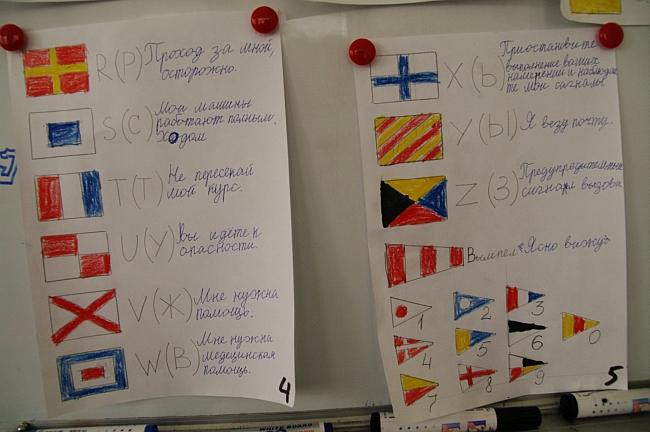 R(P) Проход за мной,
осторожно.
S(С) Мои машины
работают полным
ходом
T(Т) Не пересекай
мой курс.
U(У) Вы идете к
опасности.
V(Ж) Мне нужна
помощь.
W(В) Мне нужна
медицинская
помощь.
4
X(Ь) Приостановите
выполнение ваших
намерений и наблюдай
те мои сигналы
Y(Ы) Я везу почту.
Z(З) Предупредительный
сигнал вызова
Вымпел "Ясно вижу"
1 2 3
4 5 6
7 8 9
0
5
WHITE BOARD